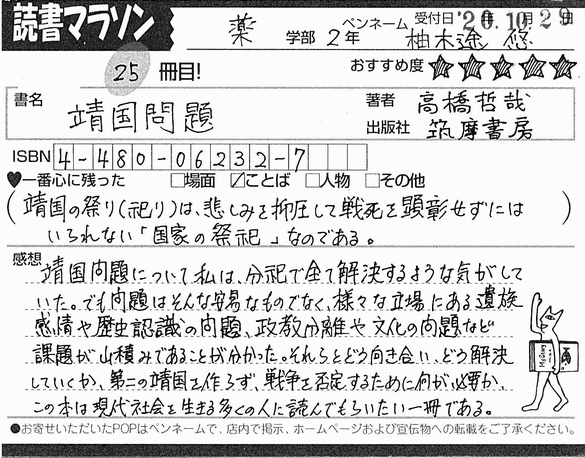 読書マラソン
薬 学部 2年 ペンネーム 柚木遥 悠
受付日 '20.10月29日
25 冊目!
おすすめ度 ★★★★★
書名 靖国問題
著者 高橋哲哉
出版社 筑摩書房
ISBN 4-480-06232-7
♥一番心に残った □場面 ☑ことば □人物 □その他
(靖国の祭り(祀り)は、悲しみを抑圧して戦死を顕彰せずには
いられない「国家の祭祀」なのである。)
感想
靖国問題について私は、分祀で全て解決するような気がして
いた。でも問題はそんな容易なものでなく、様々な立場にある遺族
感情や歴史認識の問題、政教分離や文化の問題など
課題が山積みであることが分かった。それらとどう向き合い、どう解決
していくか、第二の靖国を作らず、戦争を否定するために何が必要か、
この本は現代社会を生きる多くの人に読んでもらいたい一冊である。
●お寄せいただいたPOPはペンネームで、店内で掲示、ホームページおよび宣伝物への転載をご了承ください。